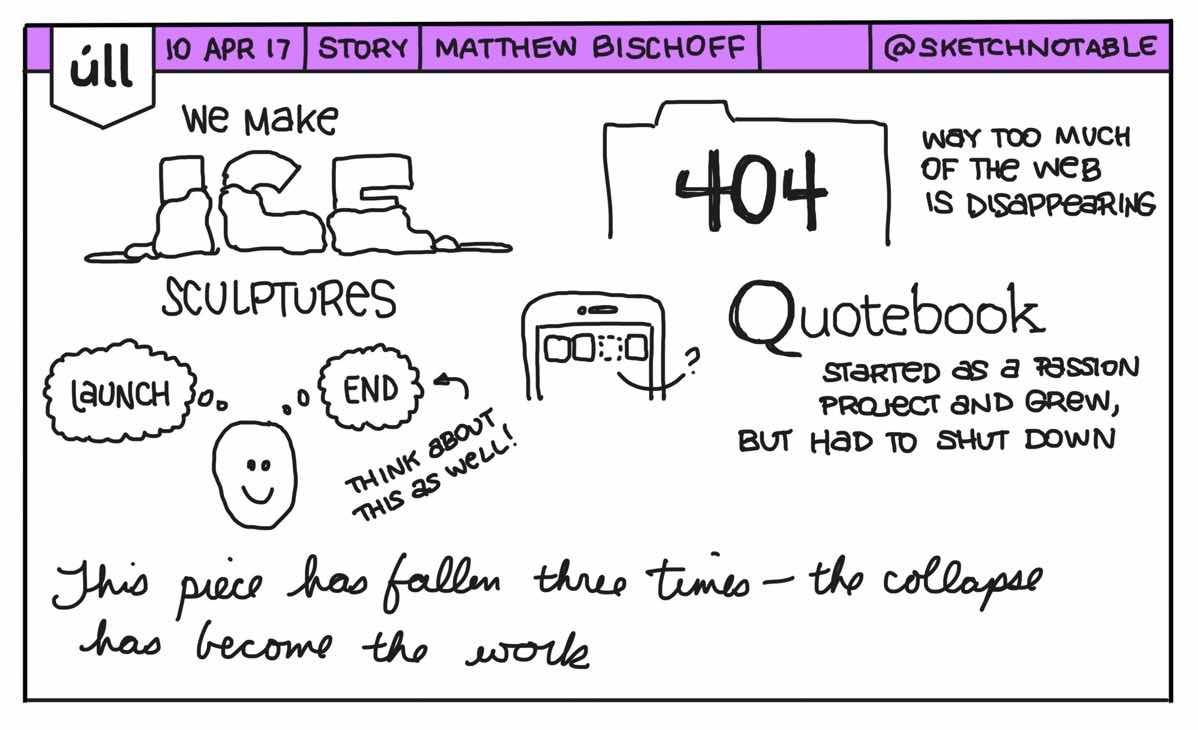 úll
10 APR 17
STORY
MATTHEW BISCHOFF
@SKETCHNOTABLE
We Make
ICE
SCULPTURES
404
WAY TOO MUCH
OF THE WEB
IS DISAPPEARING
LAUNCH
END
THINK ABOUT
THIS AS WELL!
?
Quotebook
STARTED AS A PASSION
PROJECT AND GREW,
BUT HAD TO SHUT DOWN
This piece has fallen three times — the collapse
has become the work